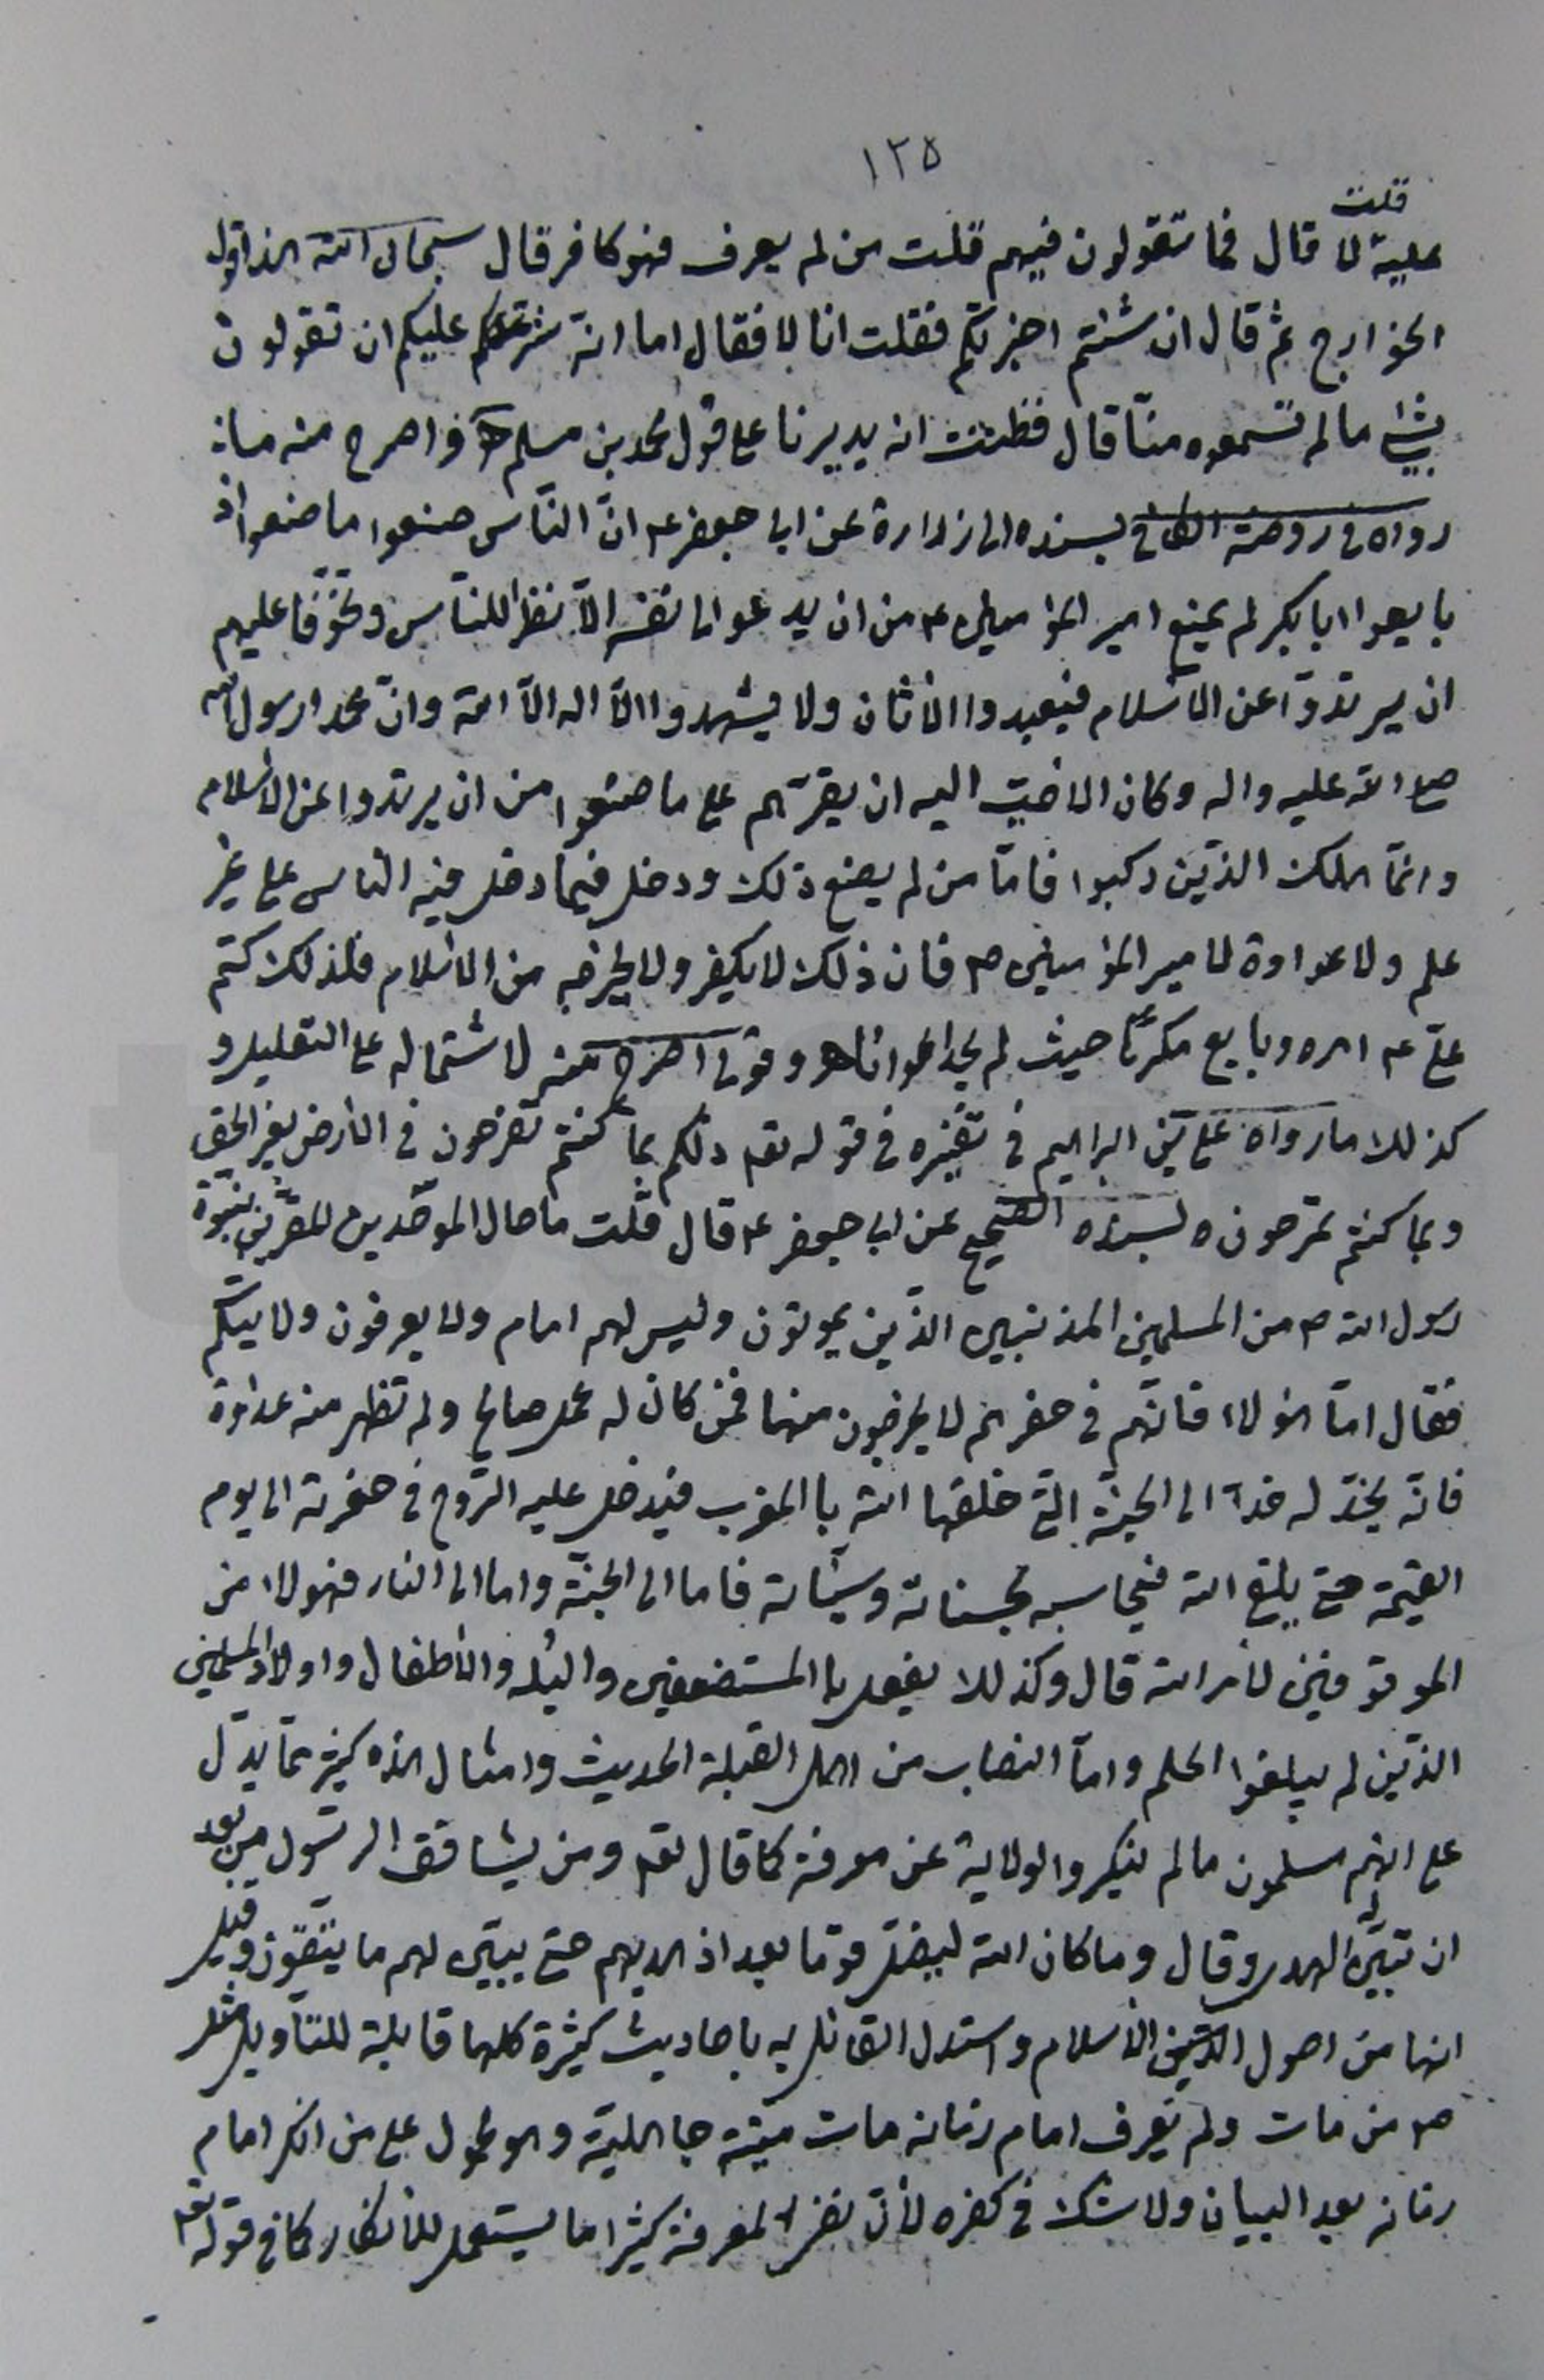 ١٢٥
قلت
عليه لا قال فما تقولون فيهم قلت من لم يعرف فهو كافر قال سبحان الله هذا قول
الخوارج ثم قال ان شئتم اخبرتكم فقلت انا لا فقال اما انه شر عليكم ان تقولون
بشئ ما لم تسمعوه منّا قال فظننت انه يديرنا على قول محمد بن مسلم اه واصرح منه ما
رواه فى روضة الكافى بسنده الى زرارة عن ابى جعفر ع انّ النّاس صنعوا ما صنعوا اذ
بايعوا ابا بكر لم يمنع امير المؤمنين ع من ان يدعو الى نفسه الّا نظرا للنّاس وتخوّفا عليهم
ان يرتدوّا عن الاسلام فيعبدوا الاوثان ولا يشهدوا الّا اله الّا الله وانّ محمدا رسول الله
صلى الله عليه واله وكان الاحبّ اليه ان يقرّهم على ما صنعوا من ان يرتدوا عن الاسلام
وانّما هلك الذّين ركبوا فامّا من لم يصنع ذلك ودخل فيما دخل فيه الناس على غير
علم ولا عداوة لامير المؤمنين ص فان ذلك لا يكفر ولا يخرجه من الاسلام فلذلك كتم
علىّ ع امره وبايع مكرهًا حيث لم يجد اعوانا اه وقولى اصرح منه لاشتماله على التعليل و
كذلك ما رواه على بن ابراهيم فى تفسيره فى قوله تعه ذلكم بما كنتم تفرحون فى الارض بغير الحق
وبما كنتم تمرحون ه بسنده الصحيح عن ابى جعفر ع قال قلت ما حال الموحّدين المقرّين بنبوّة
رسول الله ص من المسلمين المذنبين الذّين يموتون وليس لهم امام ولا يعرفون ولايتكم
فقال امّا هؤلاء فانّهم فى حفرهم لا يخرجون منها فمن كان له عمل صالح ولم تظهر منه عداوة
فانّه يخدّ له خدّا الى الجنّة التى خلقها الله بالمغرب فيدخل عليه الرّوح فى حفرته الى يوم
القيمة حتى يلقى الله فيحاسبه بحسناته وسيّئاته فاما الى الجنّة واما الى النار فهؤلاء من
الموقوفين لامر الله قال وكذلك يفعل بالمستضعفين والبُله والاطفال واولاد المسلمين
الذّين لم يبلغوا الحلم وامّا النصاب من اهل القبلة الحديث وامثال هذه كثيرة ممّا يدّل
على انّهم مسلمون ما لم ينكروا الولاية عن معرفة كما قال تعه ومن يشاقق الرّسول من بعد
ان تبيّن له الهدى وقال وما كان الله ليضلّ قوما بعد اذ هديهم حتى يبيّن لهم ما يتّقون وقيل
انها من اصول الدّين الاسلام واستدل القائل به باحاديث كثيرة كلها قابلة للتّاويل مثل
ص من مات ولم يعرف امام زمانه مات ميتة جاهليّة وهو محمول على من انكر امام
زمانه بعد البيان ولا شك فى كفره لانّ نفى المعرفة كثيرا ما يستعمل للانكار كما فى قوله تعه